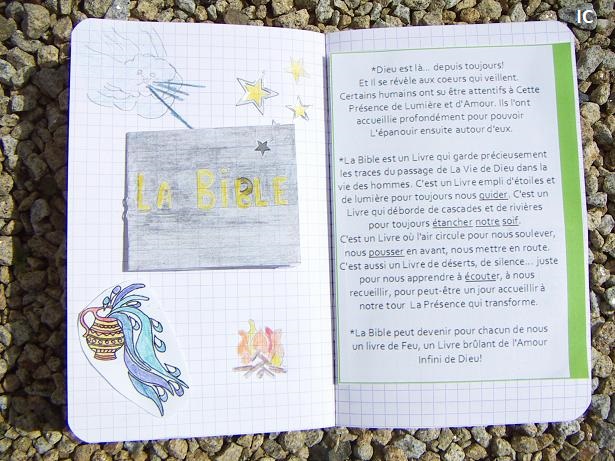 IC
LA BiBLE
*Dieu est là... depuis toujours!
Et Il se révèle aux coeurs qui veillent.
Certains humains ont su être attentifs à Cette
Présence de Lumière et d'Amour. Ils l'ont
accueillie profondément pour pouvoir
L'épanouir ensuite autour d'eux.
*La Bible est un Livre qui garde précieusement
les traces du passage de La Vie de Dieu dans la
vie des hommes. C'est un Livre empli d'étoiles et
de lumière pour toujours nous guider. C'est un
Livre qui déborde de cascades et de rivières
pour toujours étancher notre soif.
C'est un Livre où l'air circule pour nous soulever,
nous pousser en avant, nous mettre en route.
C'est aussi un Livre de déserts, de silence... juste
pour nous apprendre à écouter, à nous
recueillir, pour peut-être un jour accueillir à
notre tour La Présence qui transforme.
*La Bible peut devenir pour chacun de nous
un livre de Feu, un Livre brûlant de l'Amour
Infini de Dieu!